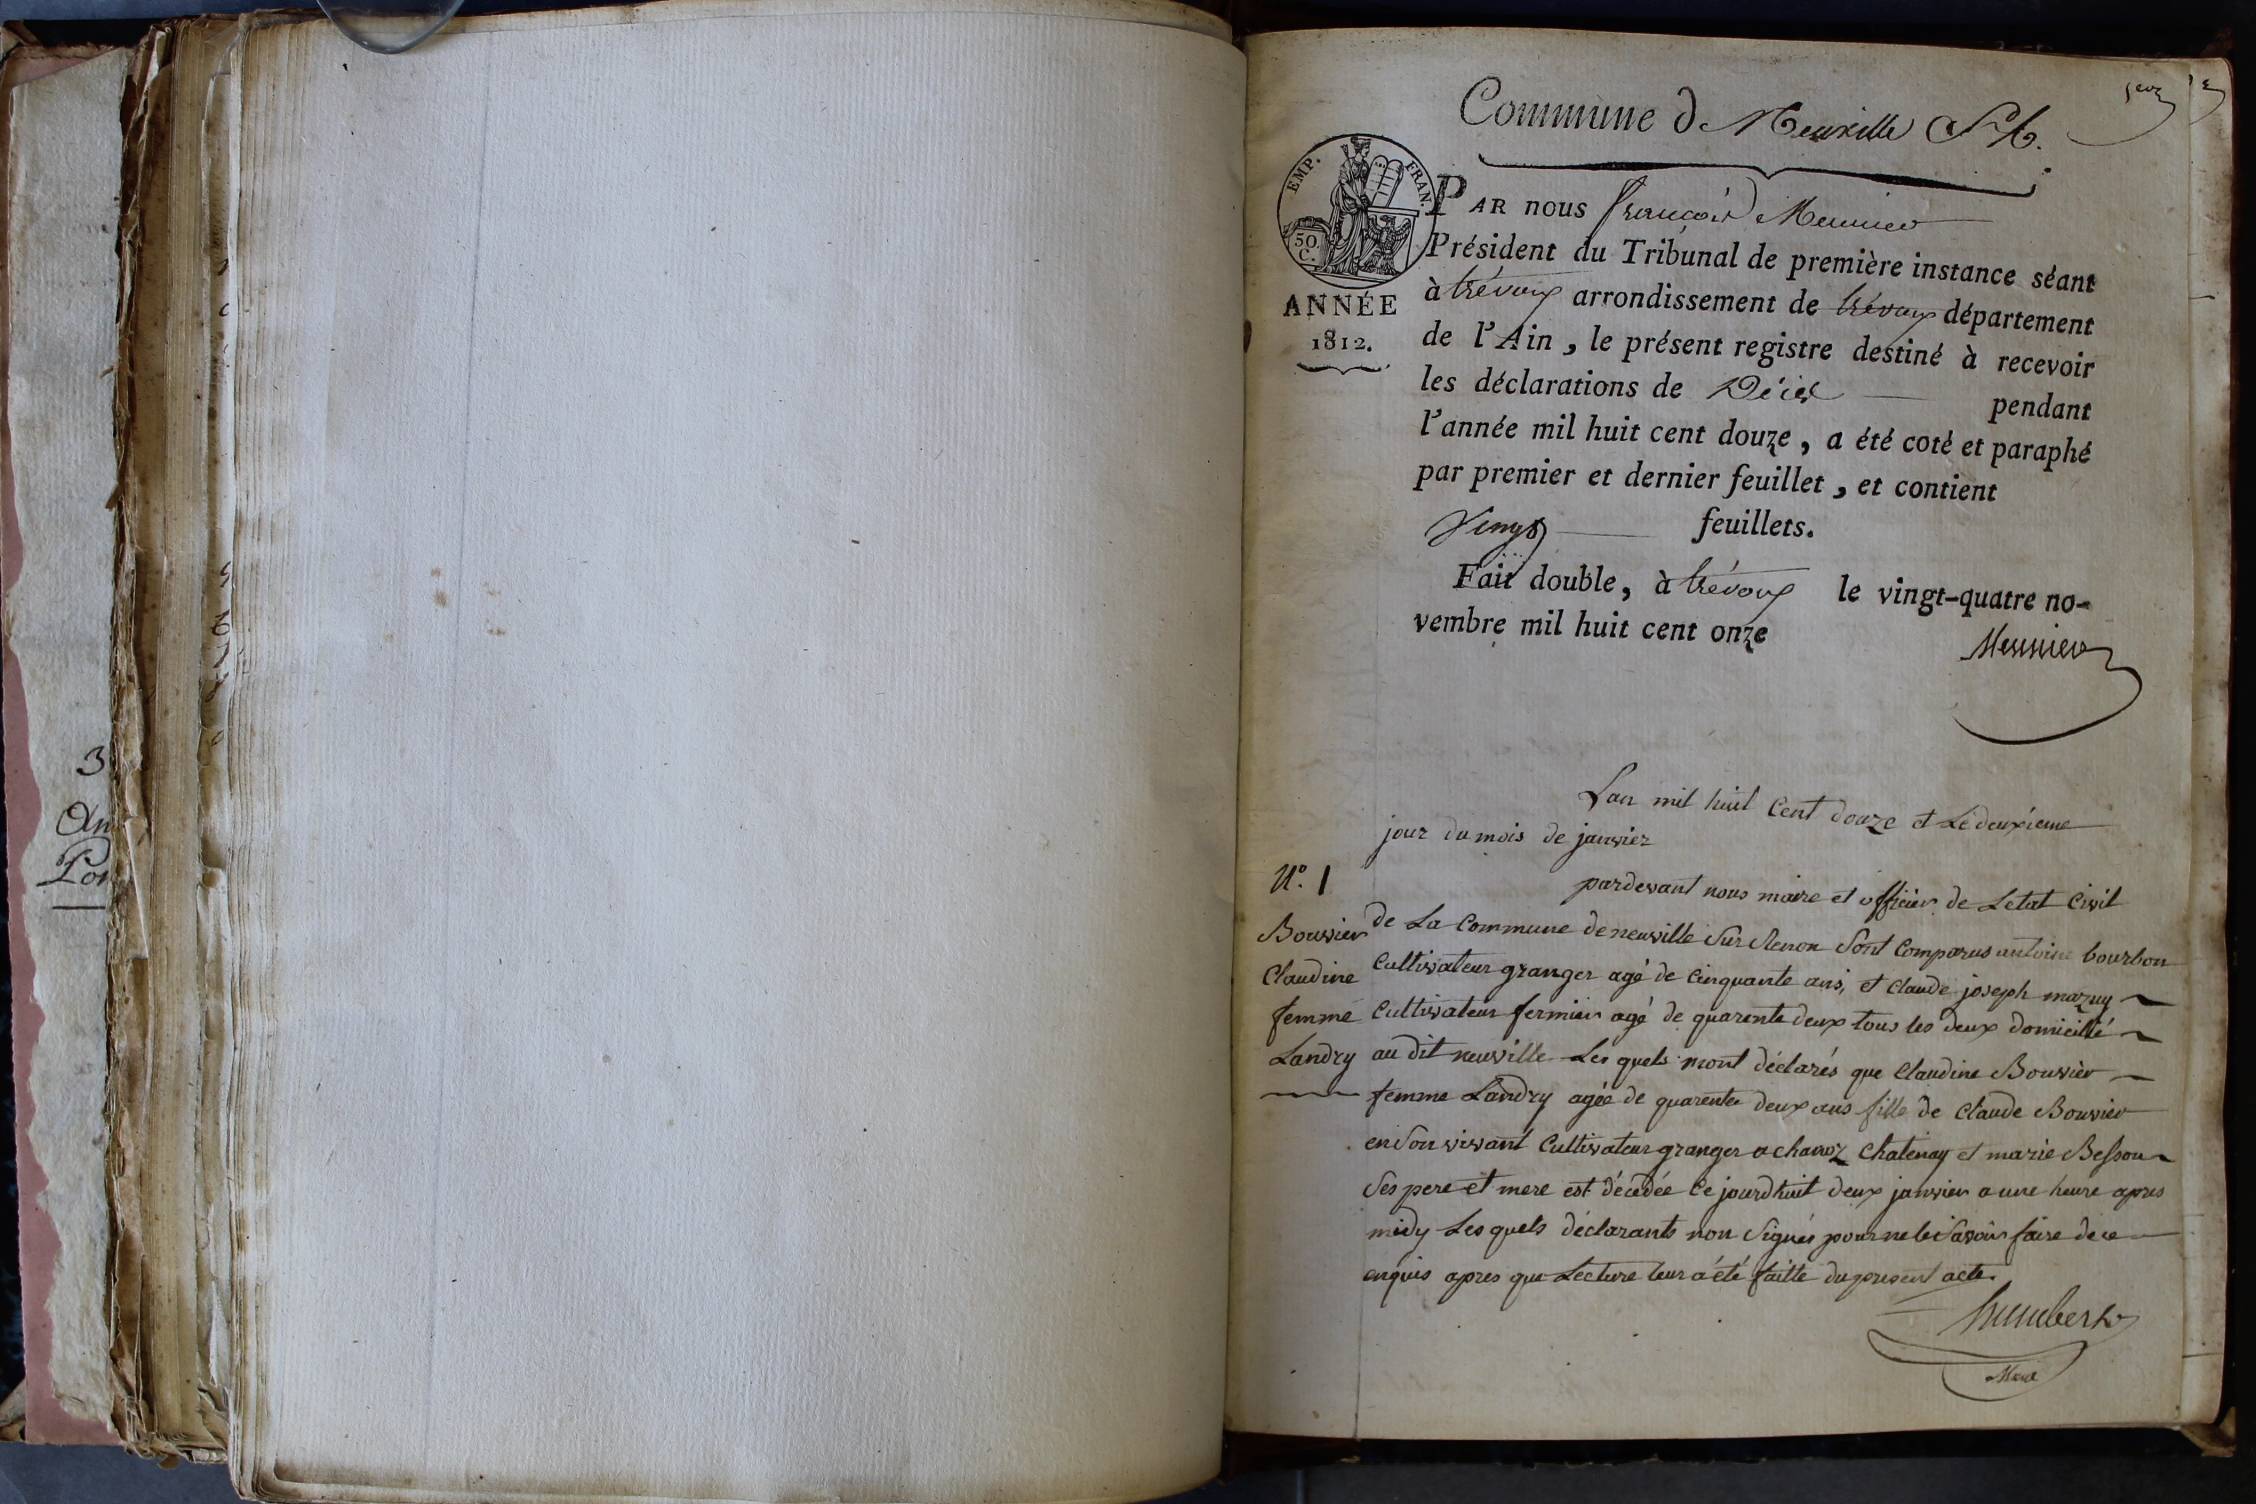 3
An
Pon
Commune de Neuville S. R.
EMP. FRAN.
50. C.
ANNÉE
1812.
PAR nous françois Meunier
Président du Tribunal de première instance séant
à trévoux arrondissement de trévoux département
de l'Ain, le présent registre destiné à recevoir
les déclarations de Décès pendant
l'année mil huit cent douze, a été coté et paraphé
par premier et dernier feuillet, et contient
Vingt feuillets.
Fait double, à trévoux le vingt-quatre no-
vembre mil huit cent onze
Meunier
Lan mil huit Cent douze et Le deuxieme
jour du mois de janvier
N.º 1
Bouvier
Claudine
femme
Landry
pardevant nous maire et officier de Letat Civil
de La Commune de neuville Sur Renon Sont Comparus antoine bourbon
Cultivateur granger agé de Cinquante ans, et Claude joseph mazuy
Cultivateur fermier agé de quarente deux tous les deux domicilié
au dit neuville Les quels mont déclarés que Claudine Bouvier
femme Landry agée de quarente deux ans fille de Claude Bouvier
en Son vivant Cultivateur granger a chanoz Chatenay et marie Besson
Ses pere et mere est décédée Ce jourdhuit deux janvier a une heure apres
midy Les quels déclarants non Signés pour ne le Savoir faire de ce
enquis apres que Lecture leur a été faitte du present acte.
humbert
Maire